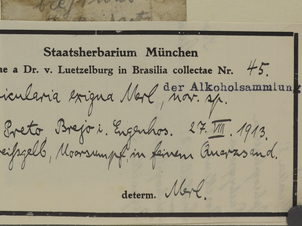 Staatsherbarium München
ae a Dr. v. Luetzelburg in Brasilia collectae Nr. 45.
der Alkoholsammlung
icularia exigua Merl, nov. sp.
Preto Brejo i. Engenhos. 27. VIII. 1913.
eißgelb, Moorsumpf in feinem Quarzsand.
determ. Merl.